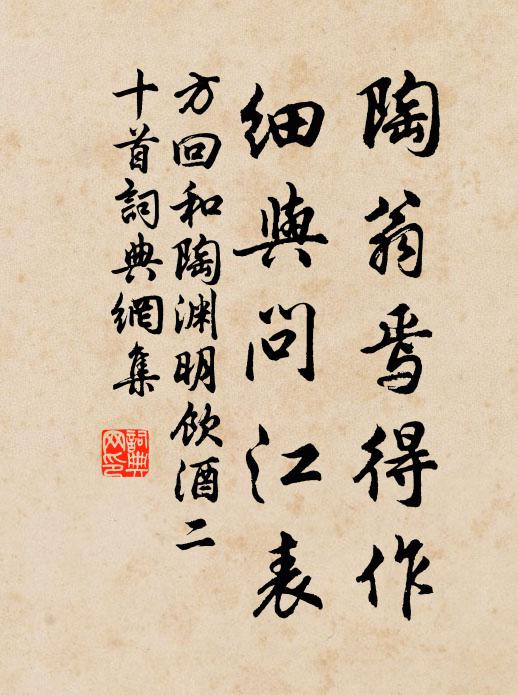 陶翁焉得作
細與問江表
方回和陶淵明飲酒二
十首詞典網集
詞典
网印